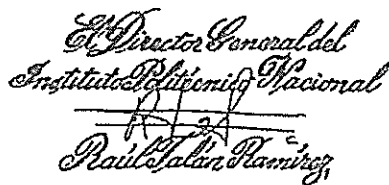 El Director General del
Instituto Politécnico Nacional
Raúl Talán Ramírez